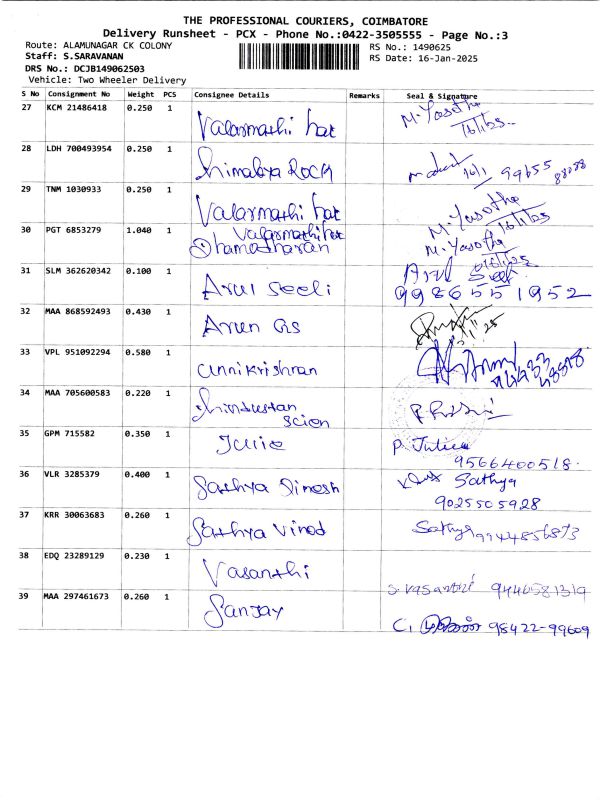 THE PROFESSIONAL COURIERS, COIMBATORE
Delivery Runsheet - PCX - Phone No.:0422-3505555 - Page No.:3
Route: ALAMUNAGAR CK COLONY RS No.: 1490625
Staff: S.SARAVANAN RS Date: 16-Jan-2025
DRS No.: DCJB149062503
Vehicle: Two Wheeler Delivery
S No Consignment No Weight PCS Consignee Details Remarks Seal & Signature
27 KCM 21486418 0.250 1 Valarmathi hat M. Yasotha 16/1/25
28 LDH 700493954 0.250 1 himalaya Rock 16/1 99655 88088
29 TNM 1030933 0.250 1 Valarmathi hat M. Yasotha 16/1/25
30 PGT 6853279 1.040 1 Valarmathi hat Dhamotharan M. Yasotha 16/1/25
31 SLM 362620342 0.100 1 Arul Seeli Arul Seeli 9986551952
32 MAA 868592493 0.430 1 Arun GS
33 VPL 951092294 0.580 1 unnikrishnan
34 MAA 705600583 0.220 1 hindustan scion
35 GPM 715582 0.350 1 Julie P. Juliee 9566400518
36 VLR 3285379 0.400 1 Sathya Dinesh Sathya 9025505928
37 KRR 30063683 0.260 1 Sathya Vinod Sathya 9944856873
38 EDQ 23289129 0.230 1 Vasanthi S. Vasanthi 9440581319
39 MAA 297461673 0.260 1 Sanjay C. 98422-99609